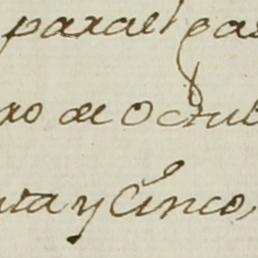 para el pa
ro de Octub
nta y Cinco,